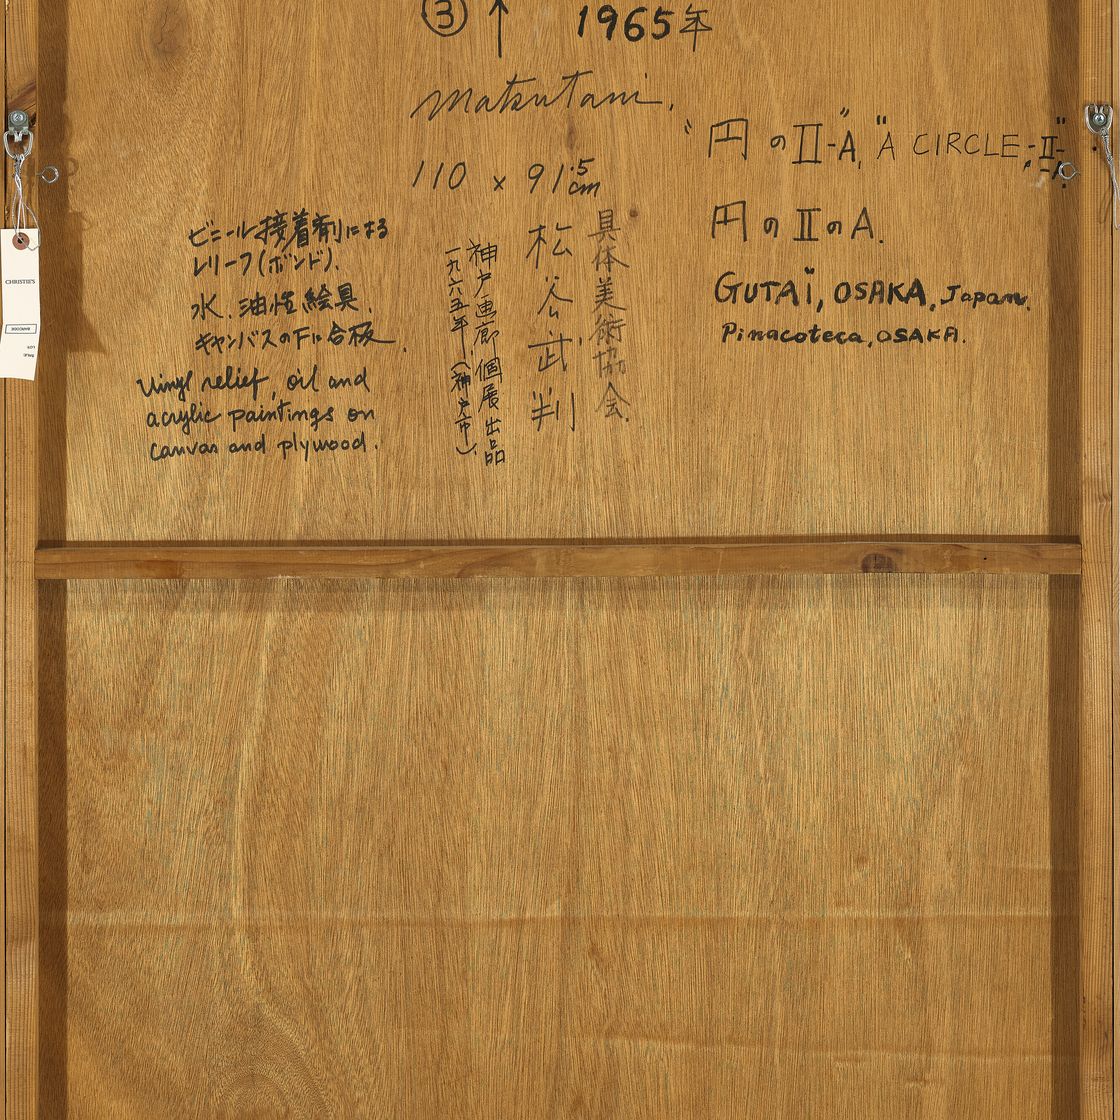 ③ ↑ 1965年
Matsutani.
110 × 91.5cm
"円のⅡ-A", "A CIRCLE,-Ⅱ-A"
円のⅡのA.
GUTAÏ, OSAKA, Japan.
Pinacoteca, OSAKA.
具体美術協会.
松谷武判
神戸画廊個展出品
一九六五年(神戸市).
ビニール接着剤による
レリーフ(ボンド).
水、油性絵具.
キャンバスの下に合板.
Vinyl relief, oil and
acrylic paintings on
canvas and plywood.
CHRISTIE'S
BARCODE
LOT
SALE: